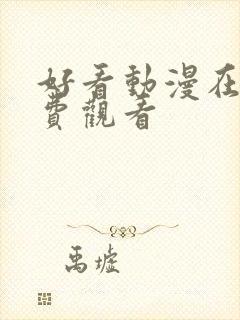 好看動漫在
費觀看
禹墟